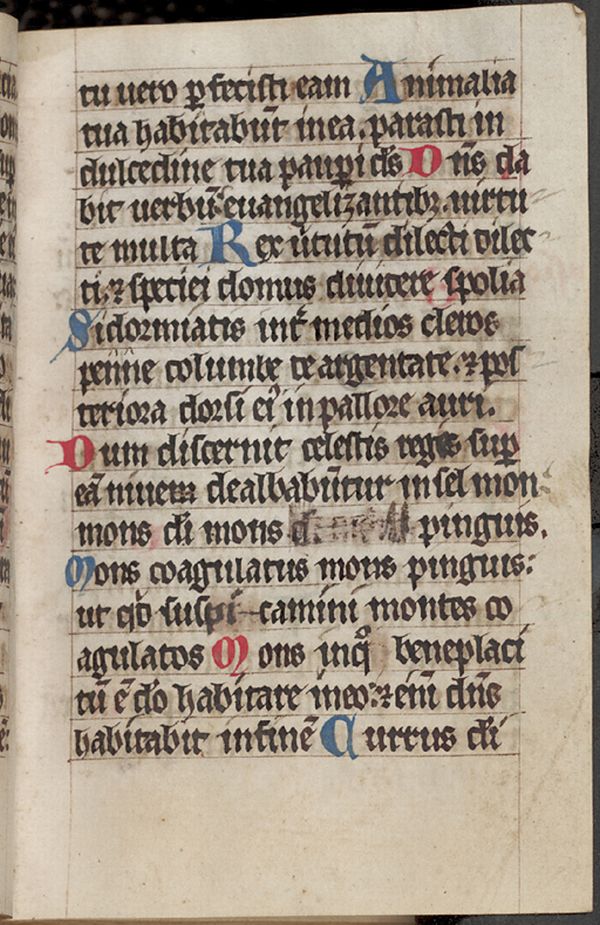 tu uero ꝑfecisti eam Animalia
tua habitabūt in ea. parasti in
dulcedine tua pauꝑi ds̄ Dn̄s da
bit uerbū euangelizantibꝫ. uirtu
te multa Rex uirtutū dilecti dilec
ti. ⁊ speciei domus diuidere spolia
Si dormiatis int̄ medios cleros
penne columbe de argentate. ⁊ pos
teriora dorsi ei᾿ in pallore auri.
Dum discernit celestis reges suꝑ
eā niuem dealbabūtur in selmon
mons di mons pinguis.
Mons coagulatus mons pinguis:
ut qd suspicamini montes co
agulatos Mons in qͦ beneplaci
tū ē do habitare in eo: ⁊ eni dn̄s
habitabit in finē Currus di